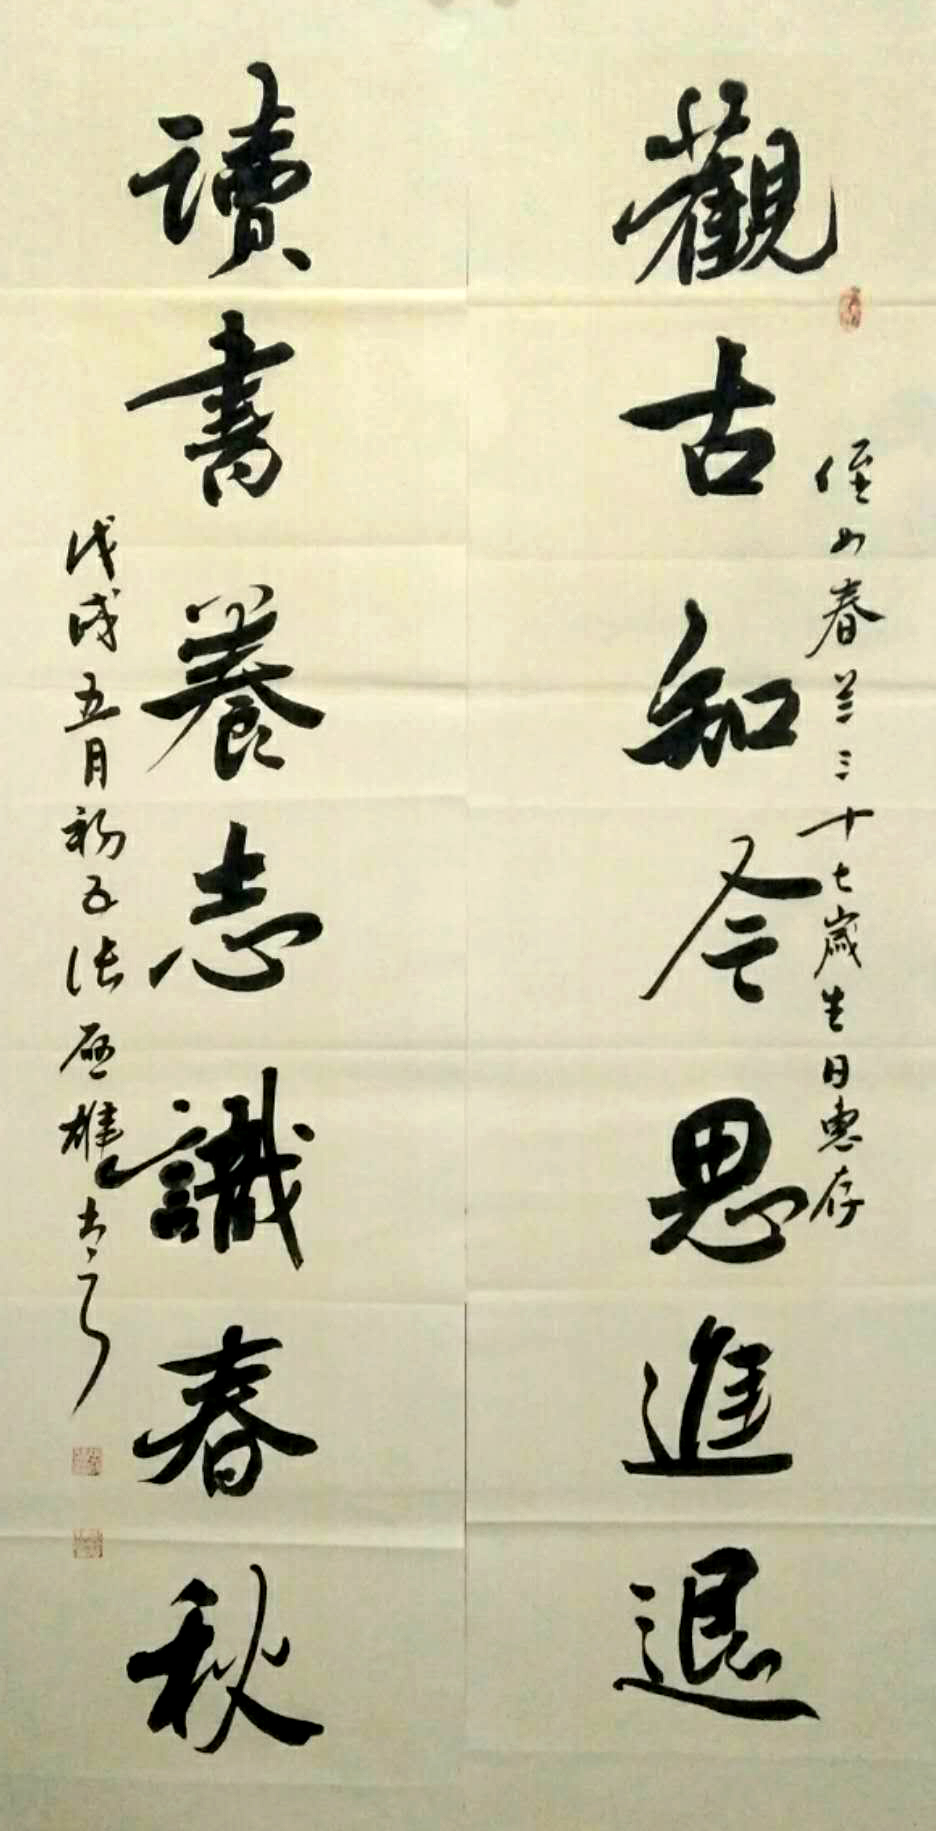 觀古知今思進退
侄女春兰三十七歲生日惠存
讀書養志識春秋
戊戌五月初五張啟雄書